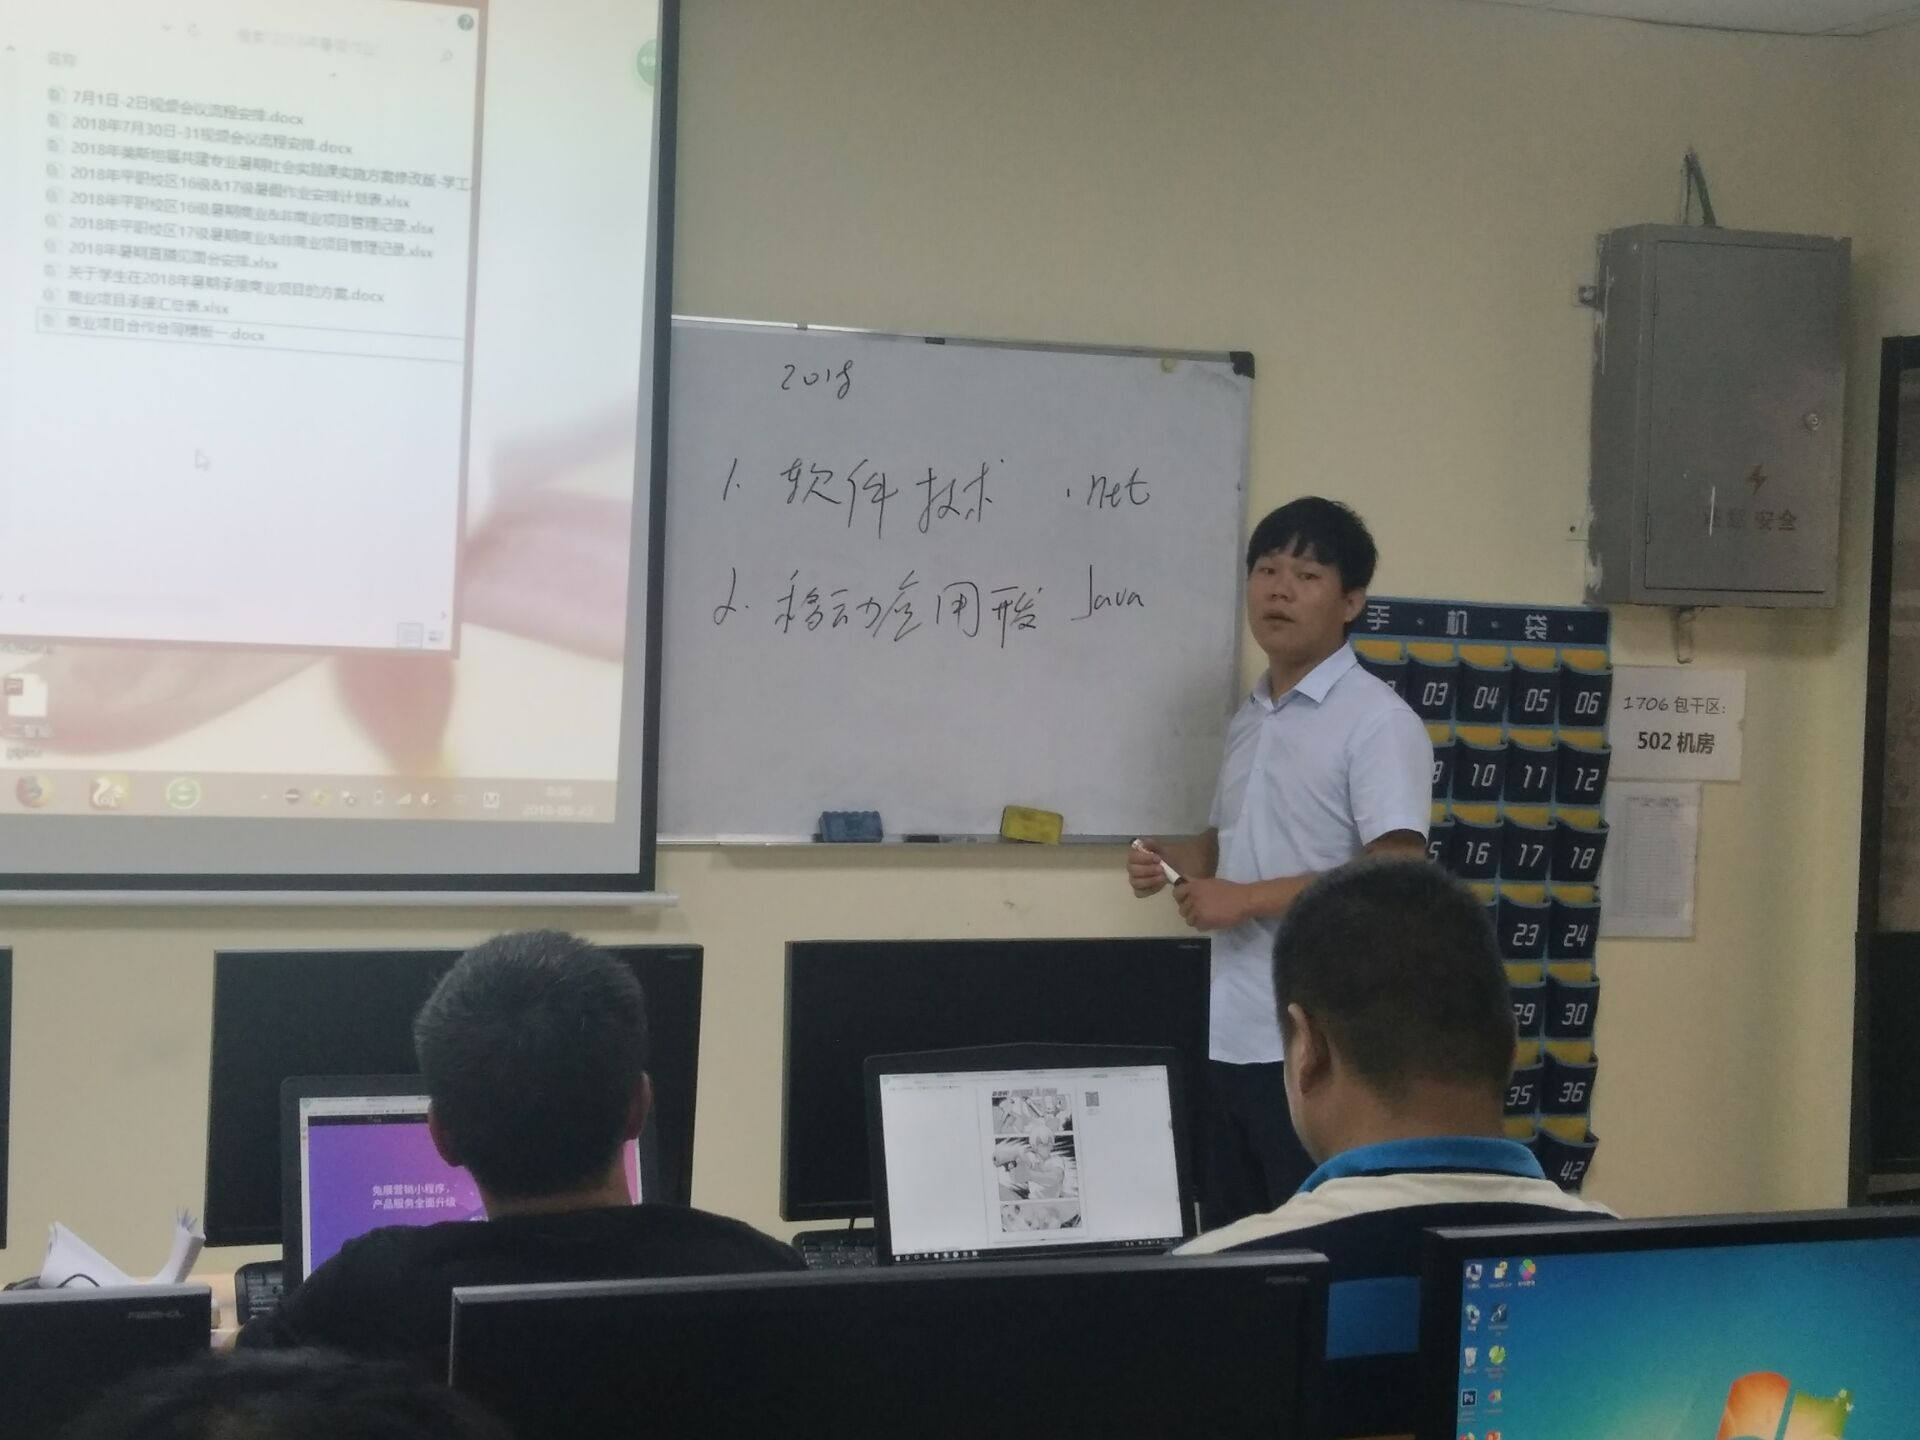 名称
7月1日-2日视频会议流程安排.docx
2018年7月30日-31视频会议流程安排.docx
2018年美斯坦福共建专业暑期社会实践课实施方案修改版-学工
2018年平职校区16级&17级暑假作业安排计划表.xlsx
2018年平职校区16级暑期商业&非商业项目管理记录.xlsx
2018年平职校区17级暑期商业&非商业项目管理记录.xlsx
2018年暑期直播见面会安排.xlsx
关于学生在2018年暑期承接商业项目的方案.docx
商业项目承接汇总表.xlsx
商业项目合作合同模板一.docx
2018-06-23
2018
1. 软件技术 .net
2. 移动应用开发 Java
安全
手·机·袋·
03 04 05 06
10 11 12
16 17 18
23 24
29 30
35 36
42
1706包干区:
502机房
兔展营销小程序,
产品服务全面升级